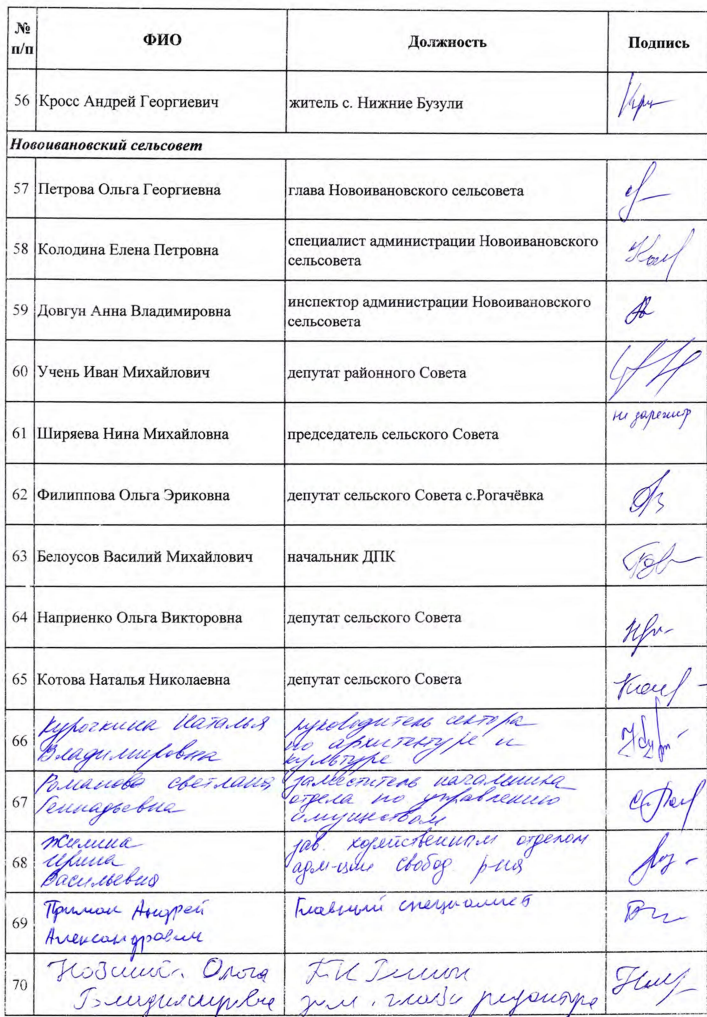 № п/п ФИО Должность Подпись
56 Кросс Андрей Георгиевич житель с. Нижние Бузули
Новоивановский сельсовет
57 Петрова Ольга Георгиевна глава Новоивановского сельсовета
58 Колодина Елена Петровна специалист администрации Новоивановского
сельсовета
59 Довгун Анна Владимировна инспектор администрации Новоивановского
сельсовета
60 Учень Иван Михайлович депутат районного Совета
61 Ширяева Нина Михайловна председатель сельского Совета не зарегистр
62 Филиппова Ольга Эриковна депутат сельского Совета с.Рогачёвка
63 Белоусов Василий Михайлович начальник ДПК
64 Наприенко Ольга Викторовна депутат сельского Совета
65 Котова Наталья Николаевна депутат сельского Совета
66 Курочкина Наталья руководитель сектора
Владимировна по архитектуре и
культуре
67 Романова Светлана заместитель начальника
Геннадьевна отдела по управлению
имуществом
68 Жилина зав. хозяйственным отделом
Ирина адм-ции Свобод. р-на
Васильевна
69 Примак Андрей Главный специалист
Александрович
70 Ольга
Владимировна зам. главы редактора